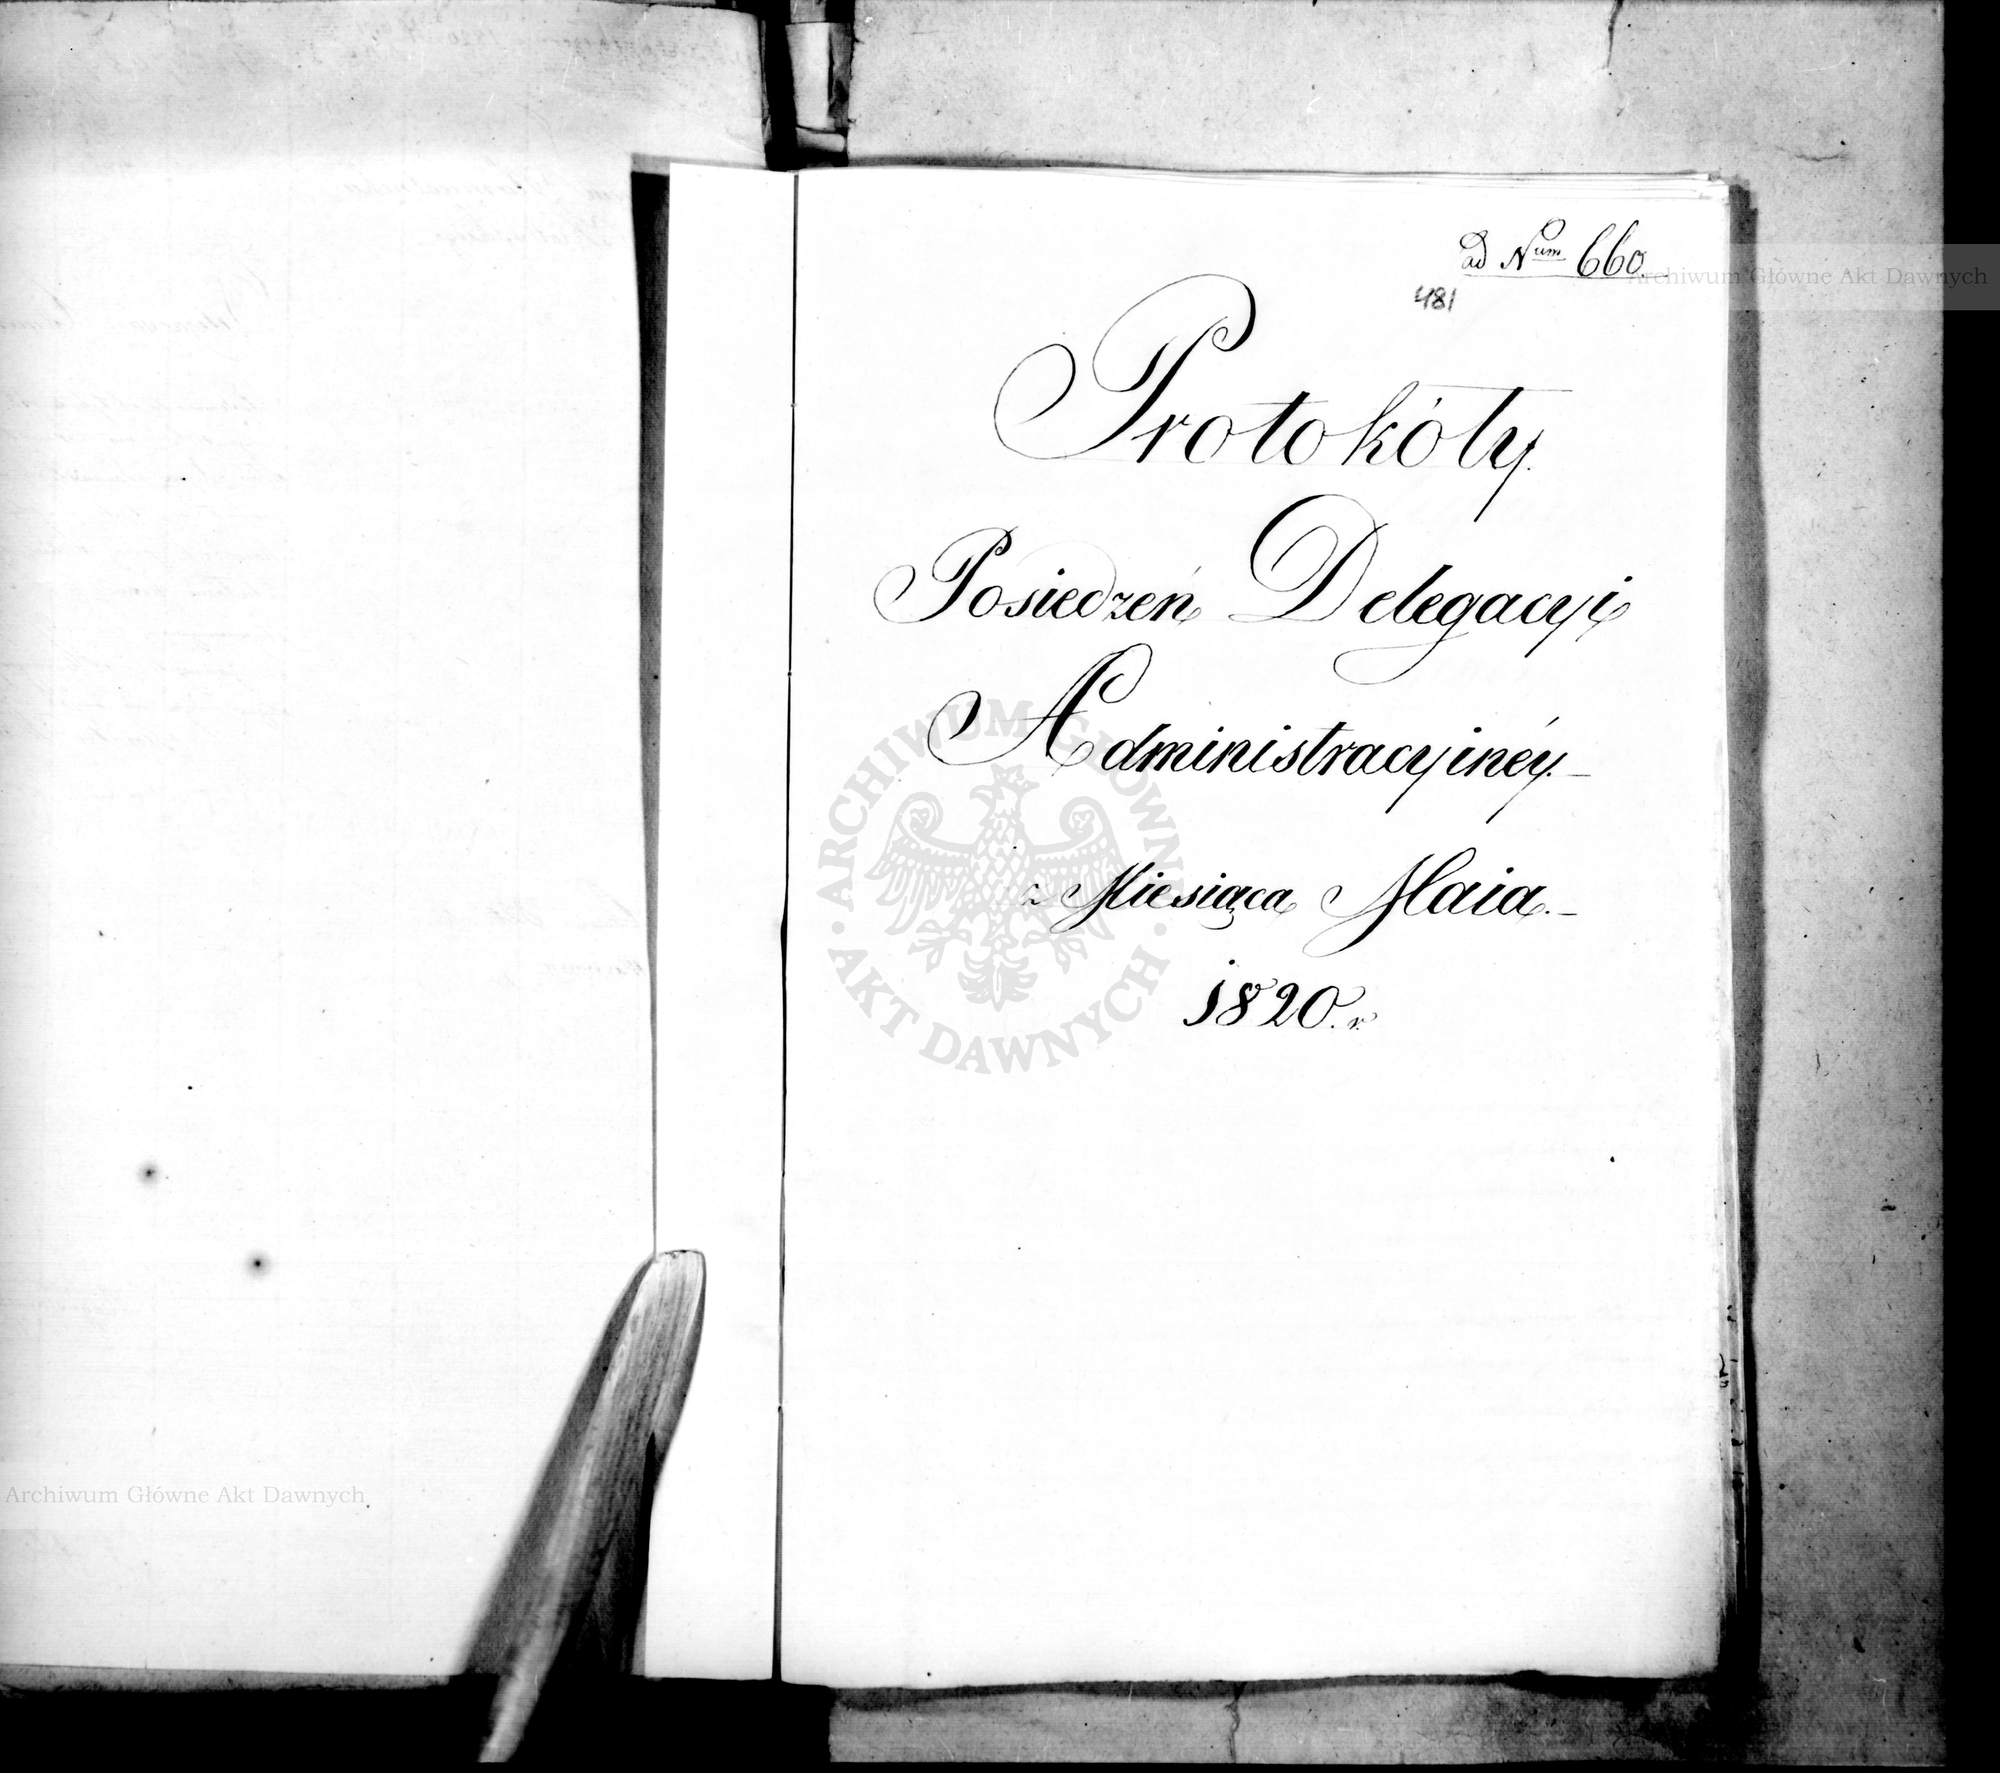 ad Num 660
481
Protokóły
Posiedzeń Delegacyi
Administracyinéy.
z Miesiąca Maia.
1820. r.
Archiwum Główne Akt Dawnych
ARCHIWUM GŁÓWNE AKT DAWNYCH
Archiwum Główne Akt Dawnych